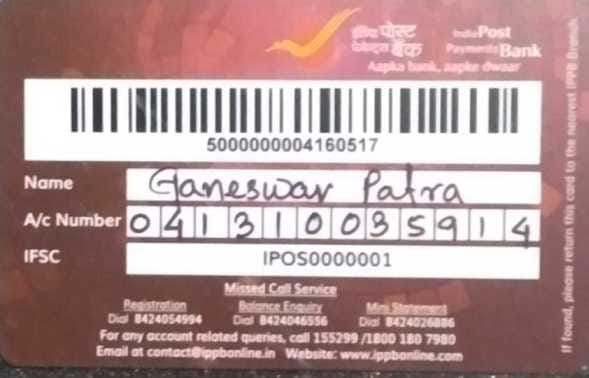 इंडिया पोस्ट
पेमेन्ट्स बैंक
India Post
Payments Bank
Aapka bank, aapke dwaar
5000000004160517
Name Ganeswar Patra
A/c Number 041310035914
IFSC IPOS0000001
Missed Call Service
Registration Balance Enquiry Mini Statement
Dial 8424054994 Dial 8424046556 Dial 8424026886
For any account related queries, call 155299 /1800 180 7980
Email at contact@ippbonline.in Website: www.ippbonline.com
If found, please return this card to the nearest IPPB Branch